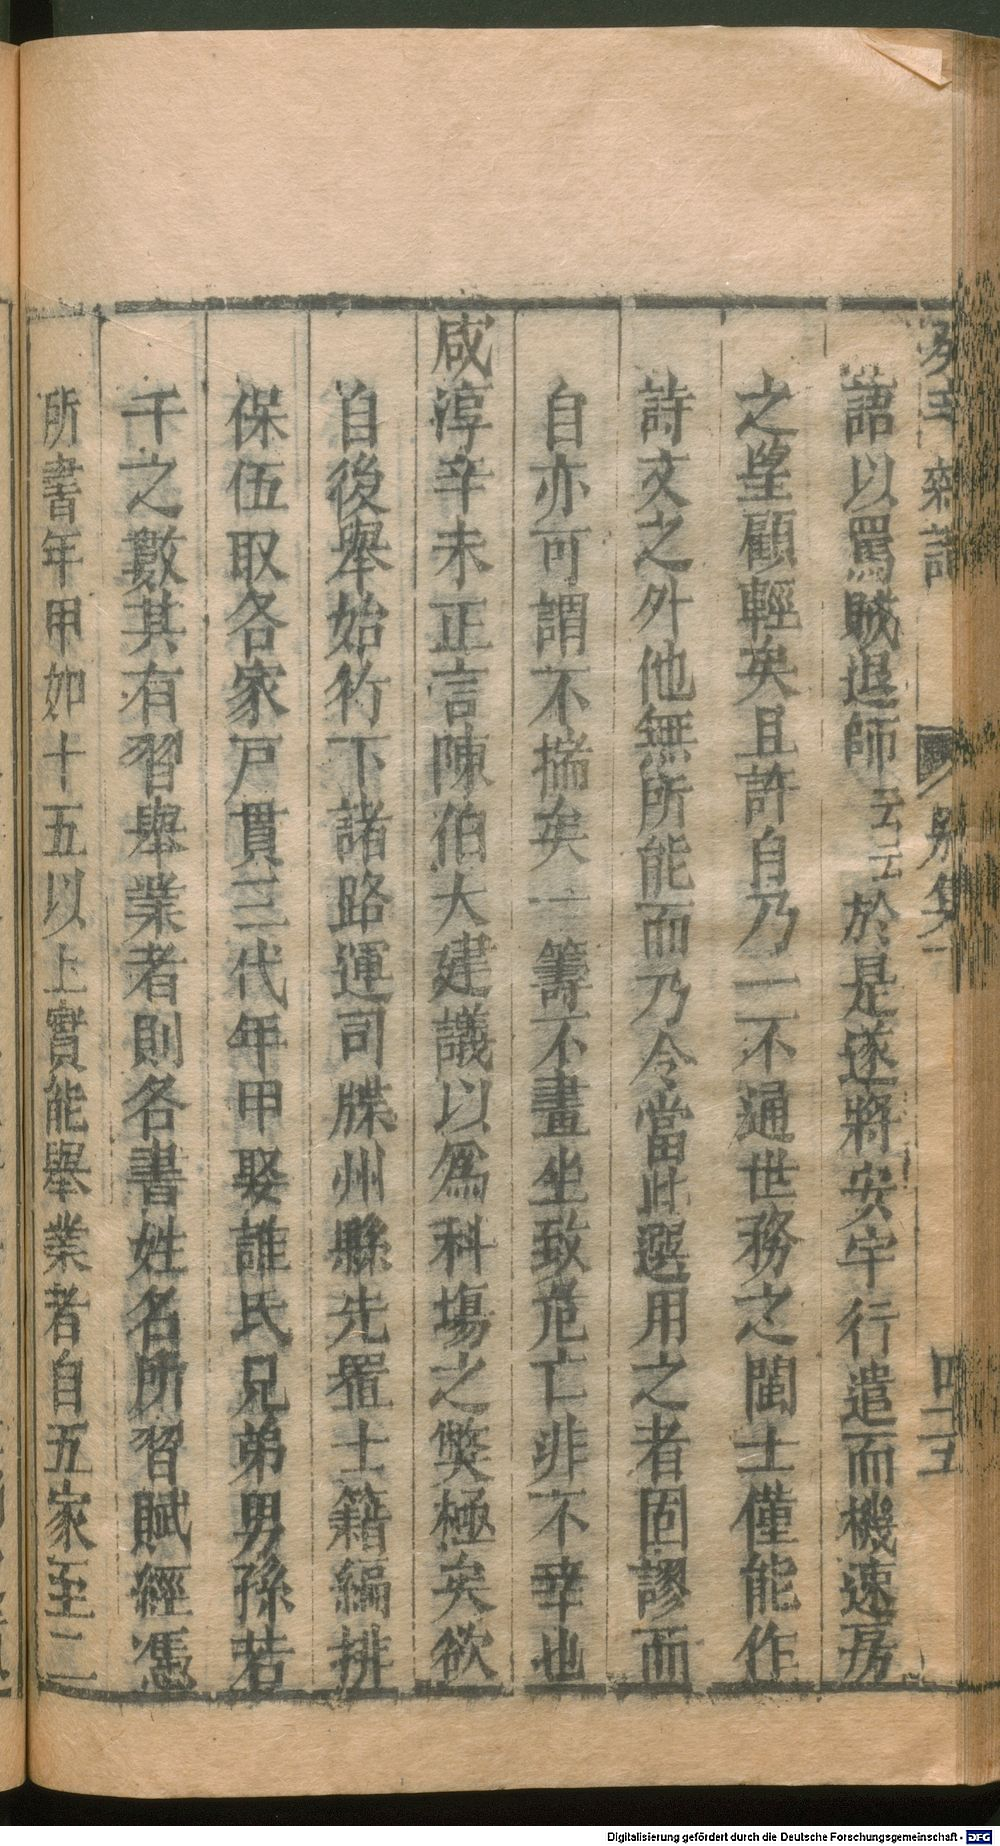 癸辛雜識 別集 四十五
語以罵賊退師云云於是遂將安宇行遣而機速房
之望顧輕矣且許自乃一不通世務之閩士僅能作
詩文之外他無所能而乃令當此選用之者固謬而
自亦可謂不揣矣一籌不畫坐致危亡非不幸也
咸淳辛未正言陳伯大建議以爲科場之獘極矣欲
自後舉始行下諸路運司牒州縣先置士籍編排
保伍取各家戸貫三代年甲娶誰氏兄弟男孫若
千之數其有習舉業者則各書姓名所習賦經憑
所書年甲如十五以上實能舉業者自五家至二
Digitalisierung gefördert durch die Deutsche Forschungsgemeinschaft - DFG